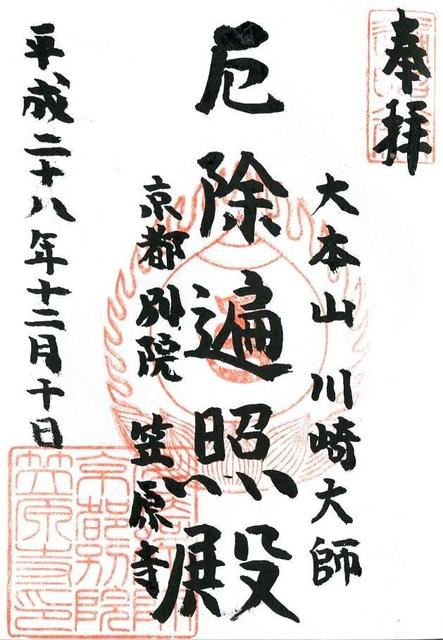 奉拝
大本山 川崎大師
厄除遍照殿
京都別院 笠原寺
平成二十八年十二月十日
京都別院
笠原寺印